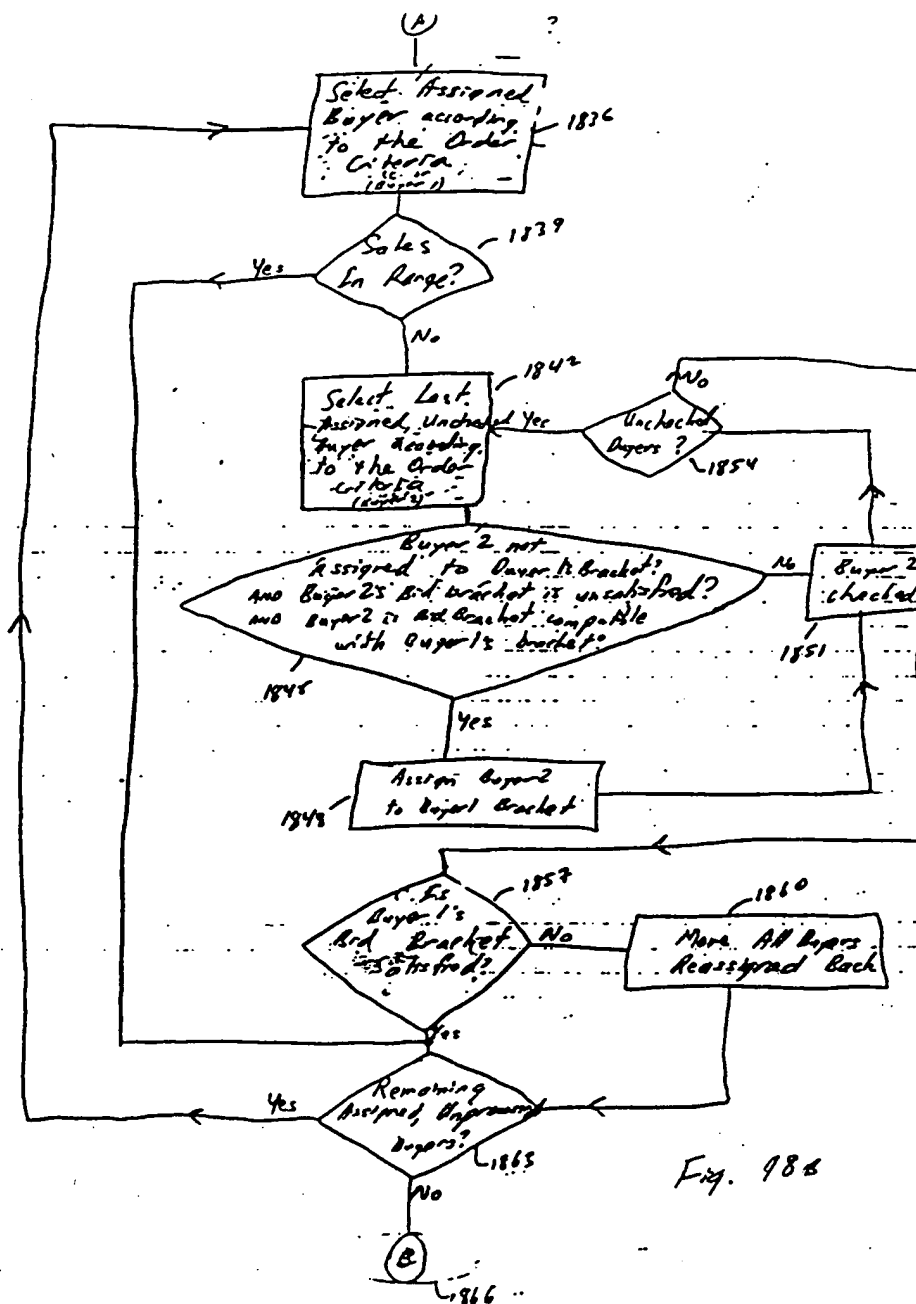 (A)
?
Select Assigned
Buyer according
to the Order
Criteria
(Buyer 1)
1836
Sales
In Range?
1839
Yes
No
Select Last
Assigned, Unchecked
Buyer according
to the Order
Criteria
(Buyer 2)
1842
Yes
No
Unchecked
Buyers?
1854
Buyer 2 not
Assigned to Buyer 1's Bracket?
AND Buyer 2's Bid bracket is unsatisfied?
AND Buyer 2's Bid Bracket compatible
with Buyer 1's bracket?
1845
No
Buyer 2
checked
1851
Yes
Assign Buyer 2
to Buyer 1 Bracket
1848
Is
Buyer 1's
Bid Bracket
Satisfied?
1857
No
Move All Buyers
Reassigned Back
1860
Yes
Remaining
Assigned, Unprocessed
Buyers?
1863
Yes
No
B
1866
Fig. 18B